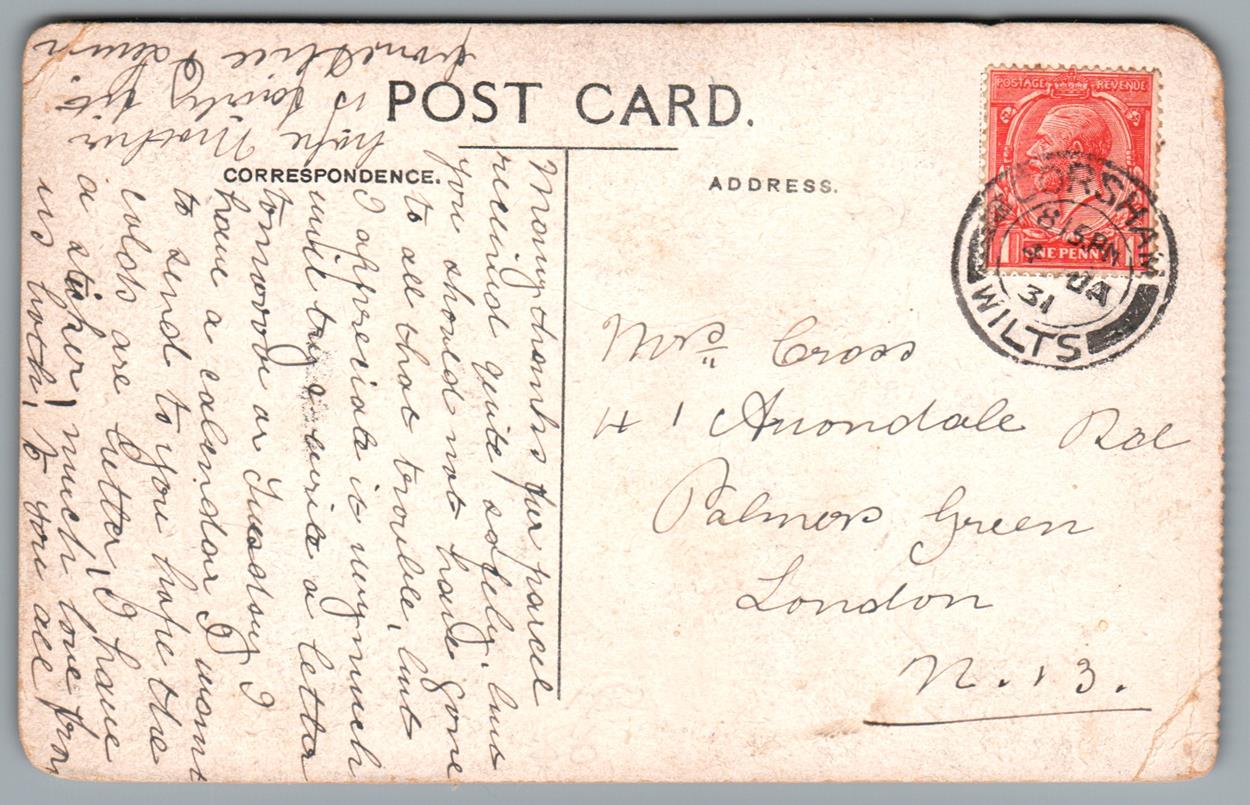 POST CARD.
CORRESPONDENCE.
ADDRESS.
POSTAGE REVENUE
ONE PENNY
CORSHAM
8 15 PM
4 JA
31
WILTS
Mrs Cross
41 Avondale Rd
Palmers Green
London
N. 13.
Many thanks for parcel
received quite safely, but
you should not have gone
to all that trouble, but
I appreciate it very much
will try & write a letter
tomorrow or Tuesday I
have a calendar I want
to send to you hope the
colds are better, I have
a much love from
us both, to you all
hope Mother
is